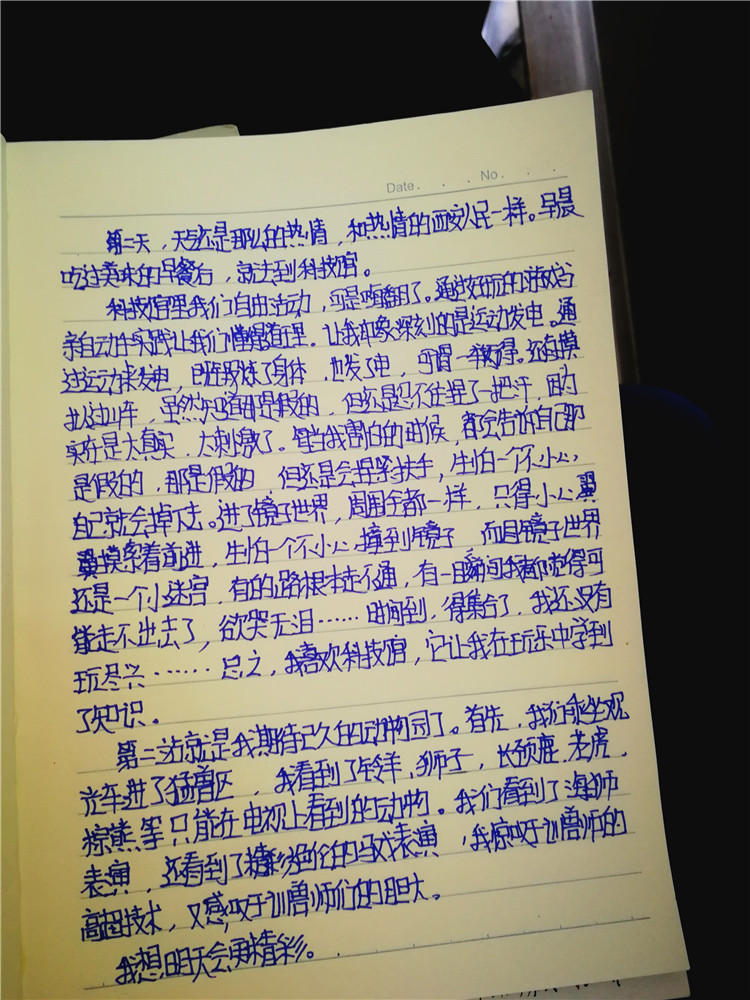 Date . . . No. . . .
第二天，天气还是那么的热情，和热情的西安人民一样。早晨
吃过美味的早餐后，就达到科技馆。
科技馆里我们自由活动，可是嗨翻了。通过好玩的游戏与
亲自动手实践让我们懂得道理。让我印象深刻的是运动发电。通
过运动来发电，既锻炼了身体，也发了电，可谓一举两得。还有模
拟过山车，虽然知道那是假的，但还是忍不住捏了一把汗，因为
实在是太真实，太刺激了。每当我害怕的时候，都会告诉自己那
是假的，那是假的，但还是会捏紧扶手，生怕一个不小心
自己就会掉下去。进了镜子世界，周围全都一样，只得小心翼
翼摸索着前进，生怕一个不小心撞到镜子，而且镜子世界
还是一个小迷宫，有的路根本走不通，有一瞬间我都觉得可
能走不出去了，欲哭无泪……时间到，得集合了，我还没有
玩尽兴……总之，我喜欢科技馆，它让我在玩乐中学到
了知识。
第二站就是我期待已久的动物园了。首先，我们乘坐观
光车进了猛兽区，我看到了羚羊，狮子，长颈鹿，老虎，
棕熊等只能在电视上看到的动物。我们看到了海狮
表演，还看到了精彩绝伦的马戏表演，我惊叹于训兽师的
高超技术，又感叹于训兽师们的胆大。
我想明天会更精彩。